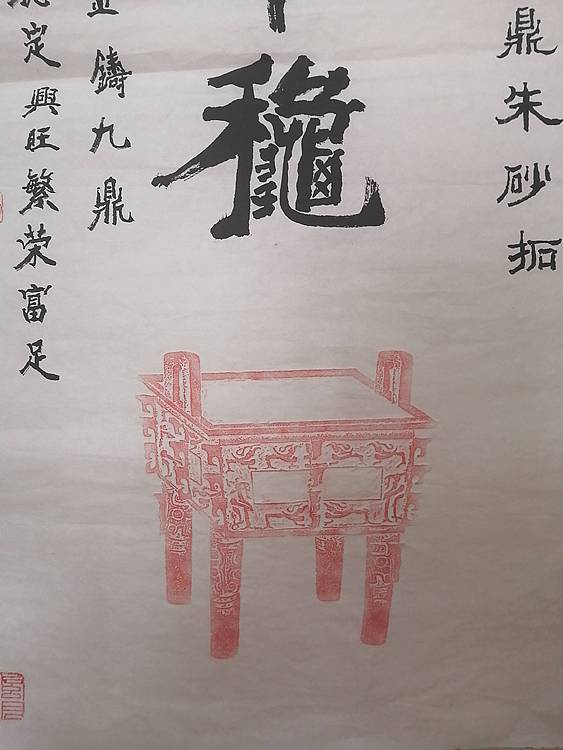 鼎朱砂拓
穐
鑄九鼎
定興旺繁荣富足